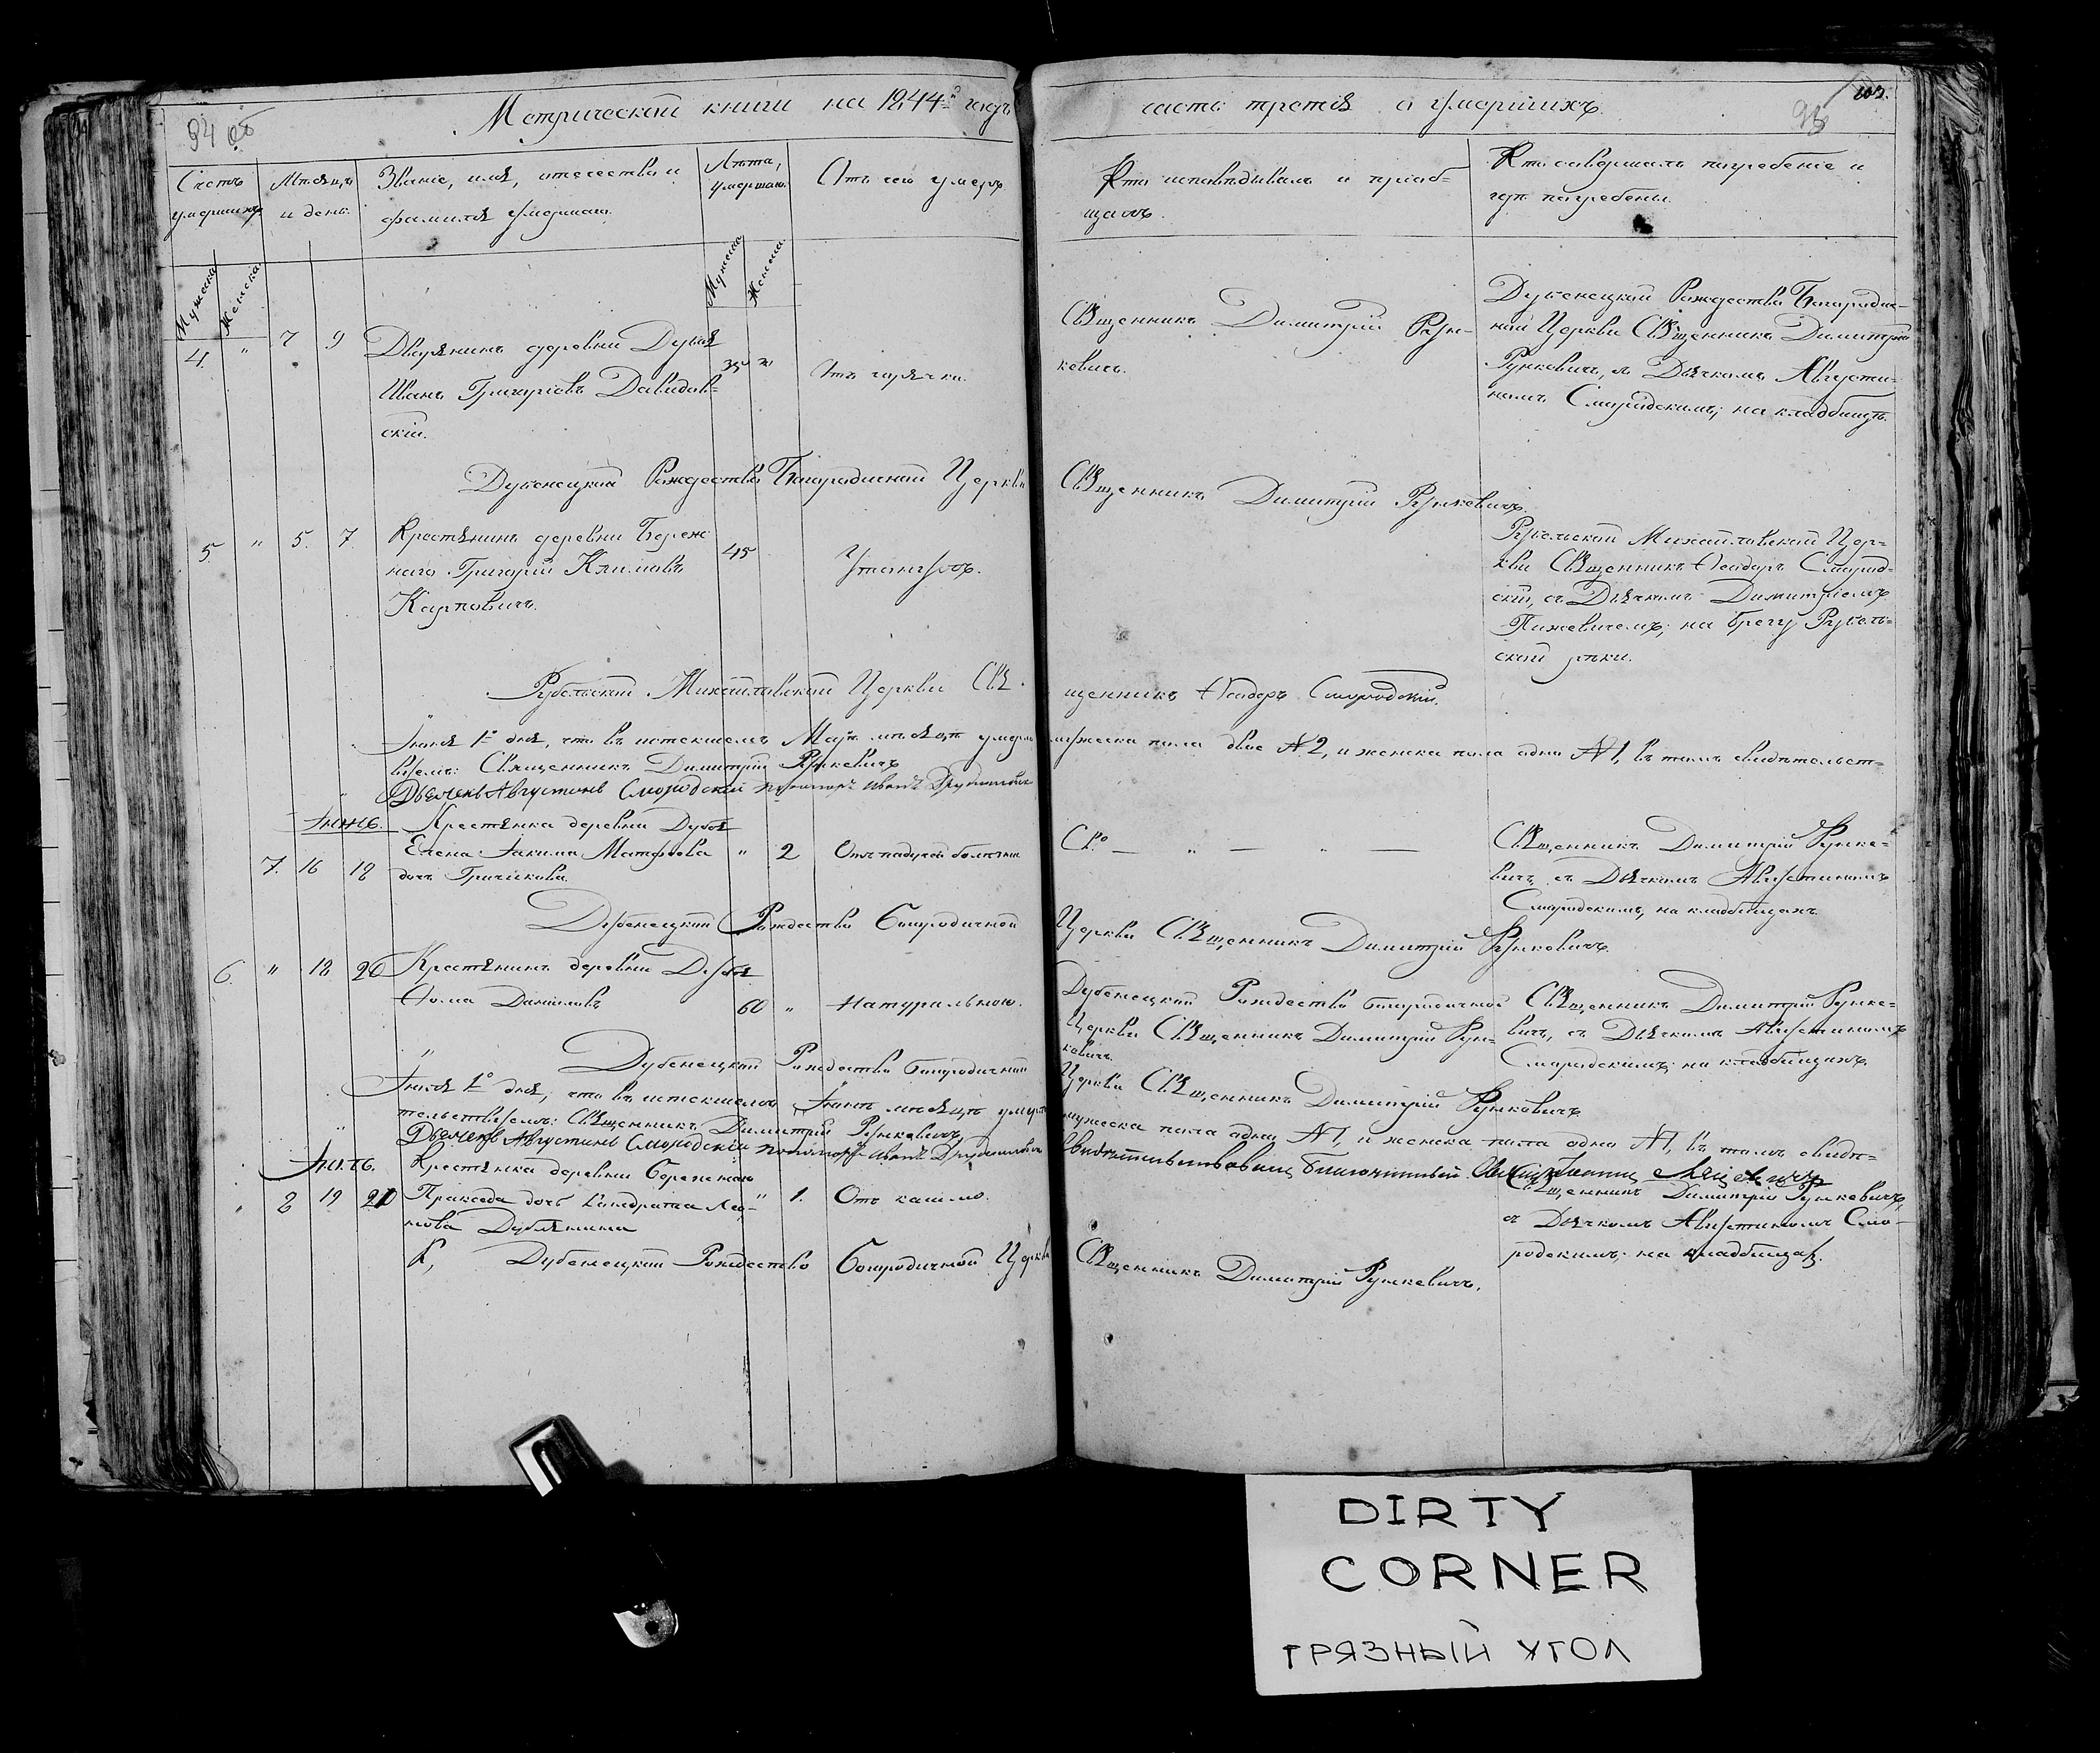 Метрической книги на 1844й годъ часть третія о умершихъ.
94 об
103.
Счетъ умершихъ
Мѣсяцъ и день.
Званіе, имя, отечество и фамилія умершаго.
Лѣта, умершаго.
Отъ чего умеръ.
Кто исповѣдывалъ и пріобщалъ.
Кто совершалъ погребеніе и гдѣ погребены.
Мужеска Женска
Мужска Женска
4. " 7 9
Дворянинъ деревни Дубая
Иванъ Григоріевъ Давидов=
скій.
35 "
Отъ горячки.
Священникъ Димитрій Рун=
кевичъ.
Дубенецкой Рождество Богородич=
ной Церкви Священникъ Димитрій
Рункевичъ, съ Дьячкомъ Августи=
номъ Смородскимъ; на кладбищѣ.
Дубенецкой Рождество Богородичной Церкви Священникъ Димитрій Рункевичъ.
5. " 5. 7.
Крестьянинъ деревни Береж
наго Григорій Климовъ
Карповичъ.
45
Утонулъ.
Рубельской Михайловской Цер=
кви Священникъ Ѳеодоръ Смород=
скій, съ Дьячкомъ Димитріемъ
на брегу Рубель=
ской рѣки.
Рубельской Михайловской Церкви Свя=
щенникъ Ѳеодоръ Смородскій.
Іюня 1го дня, что въ истекшемъ Маѣ мѣсяцѣ умерло мужеска пола двое №2, и женска пола одна №1, въ томъ свидѣтельст=
вуемъ: Священникъ Димитрій Рункевичъ
Дьячекъ Августинъ Смородскій пономарь Иванъ
Іюнь.
7. 16 18
Крестьянка деревни Дубая
Елена Іакима Матфеева
дочь Гричикова
" 2
Отъ падучей болезни
Священникъ Димитрій Рунке=
вичъ, съ Дьячкомъ Августиномъ
Смородскимъ, на кладбищахъ.
Дубенецкой Рождество Богородичной
Церкви Священникъ Димитрій Рункевичъ.
6. " 18 20
Крестьянинъ деревни Дубая
Ѳома Даниловъ
60 "
Натуральною.
Дубенецкой Рождество Богородичной
Церкви Священникъ Димитрій Рун=
кевичъ.
Священникъ Димитрій Рунке=
вичъ, съ Дьячкомъ Августиномъ
Смородскимъ; на кладбищахъ.
Дубенецкой Рождество Богородичной
Церкви Священникъ Димитрій Рункевичъ
Іюля 1го дня, что въ истекшемъ Іюнѣ мѣсяцѣ умерло мужеска пола одинъ №1, и женска пола одна №1, въ томъ свидѣ=
тельствуемъ: Священникъ Димитрій Рункевичъ,
Дьячекъ Августинъ Смородскій пономарь Иванъ
Свидѣтельствовалъ Благочинный
Іюль.
8 19 21
Крестьянка деревни Бережнаго
Праксѣда дочь Кондрата Лео=
нова Дублянина
" 1.
Отъ кашлю.
Священникъ Димитрій Рункевичъ,
съ Дьячкомъ Августиномъ Смо=
родскимъ; на кладбищахъ.
Дубенецкой Рождество Богородичной Церкви Священникъ Димитрій Рункевичъ.
DIRTY
CORNER
ГРЯЗНЫЙ УГОЛ